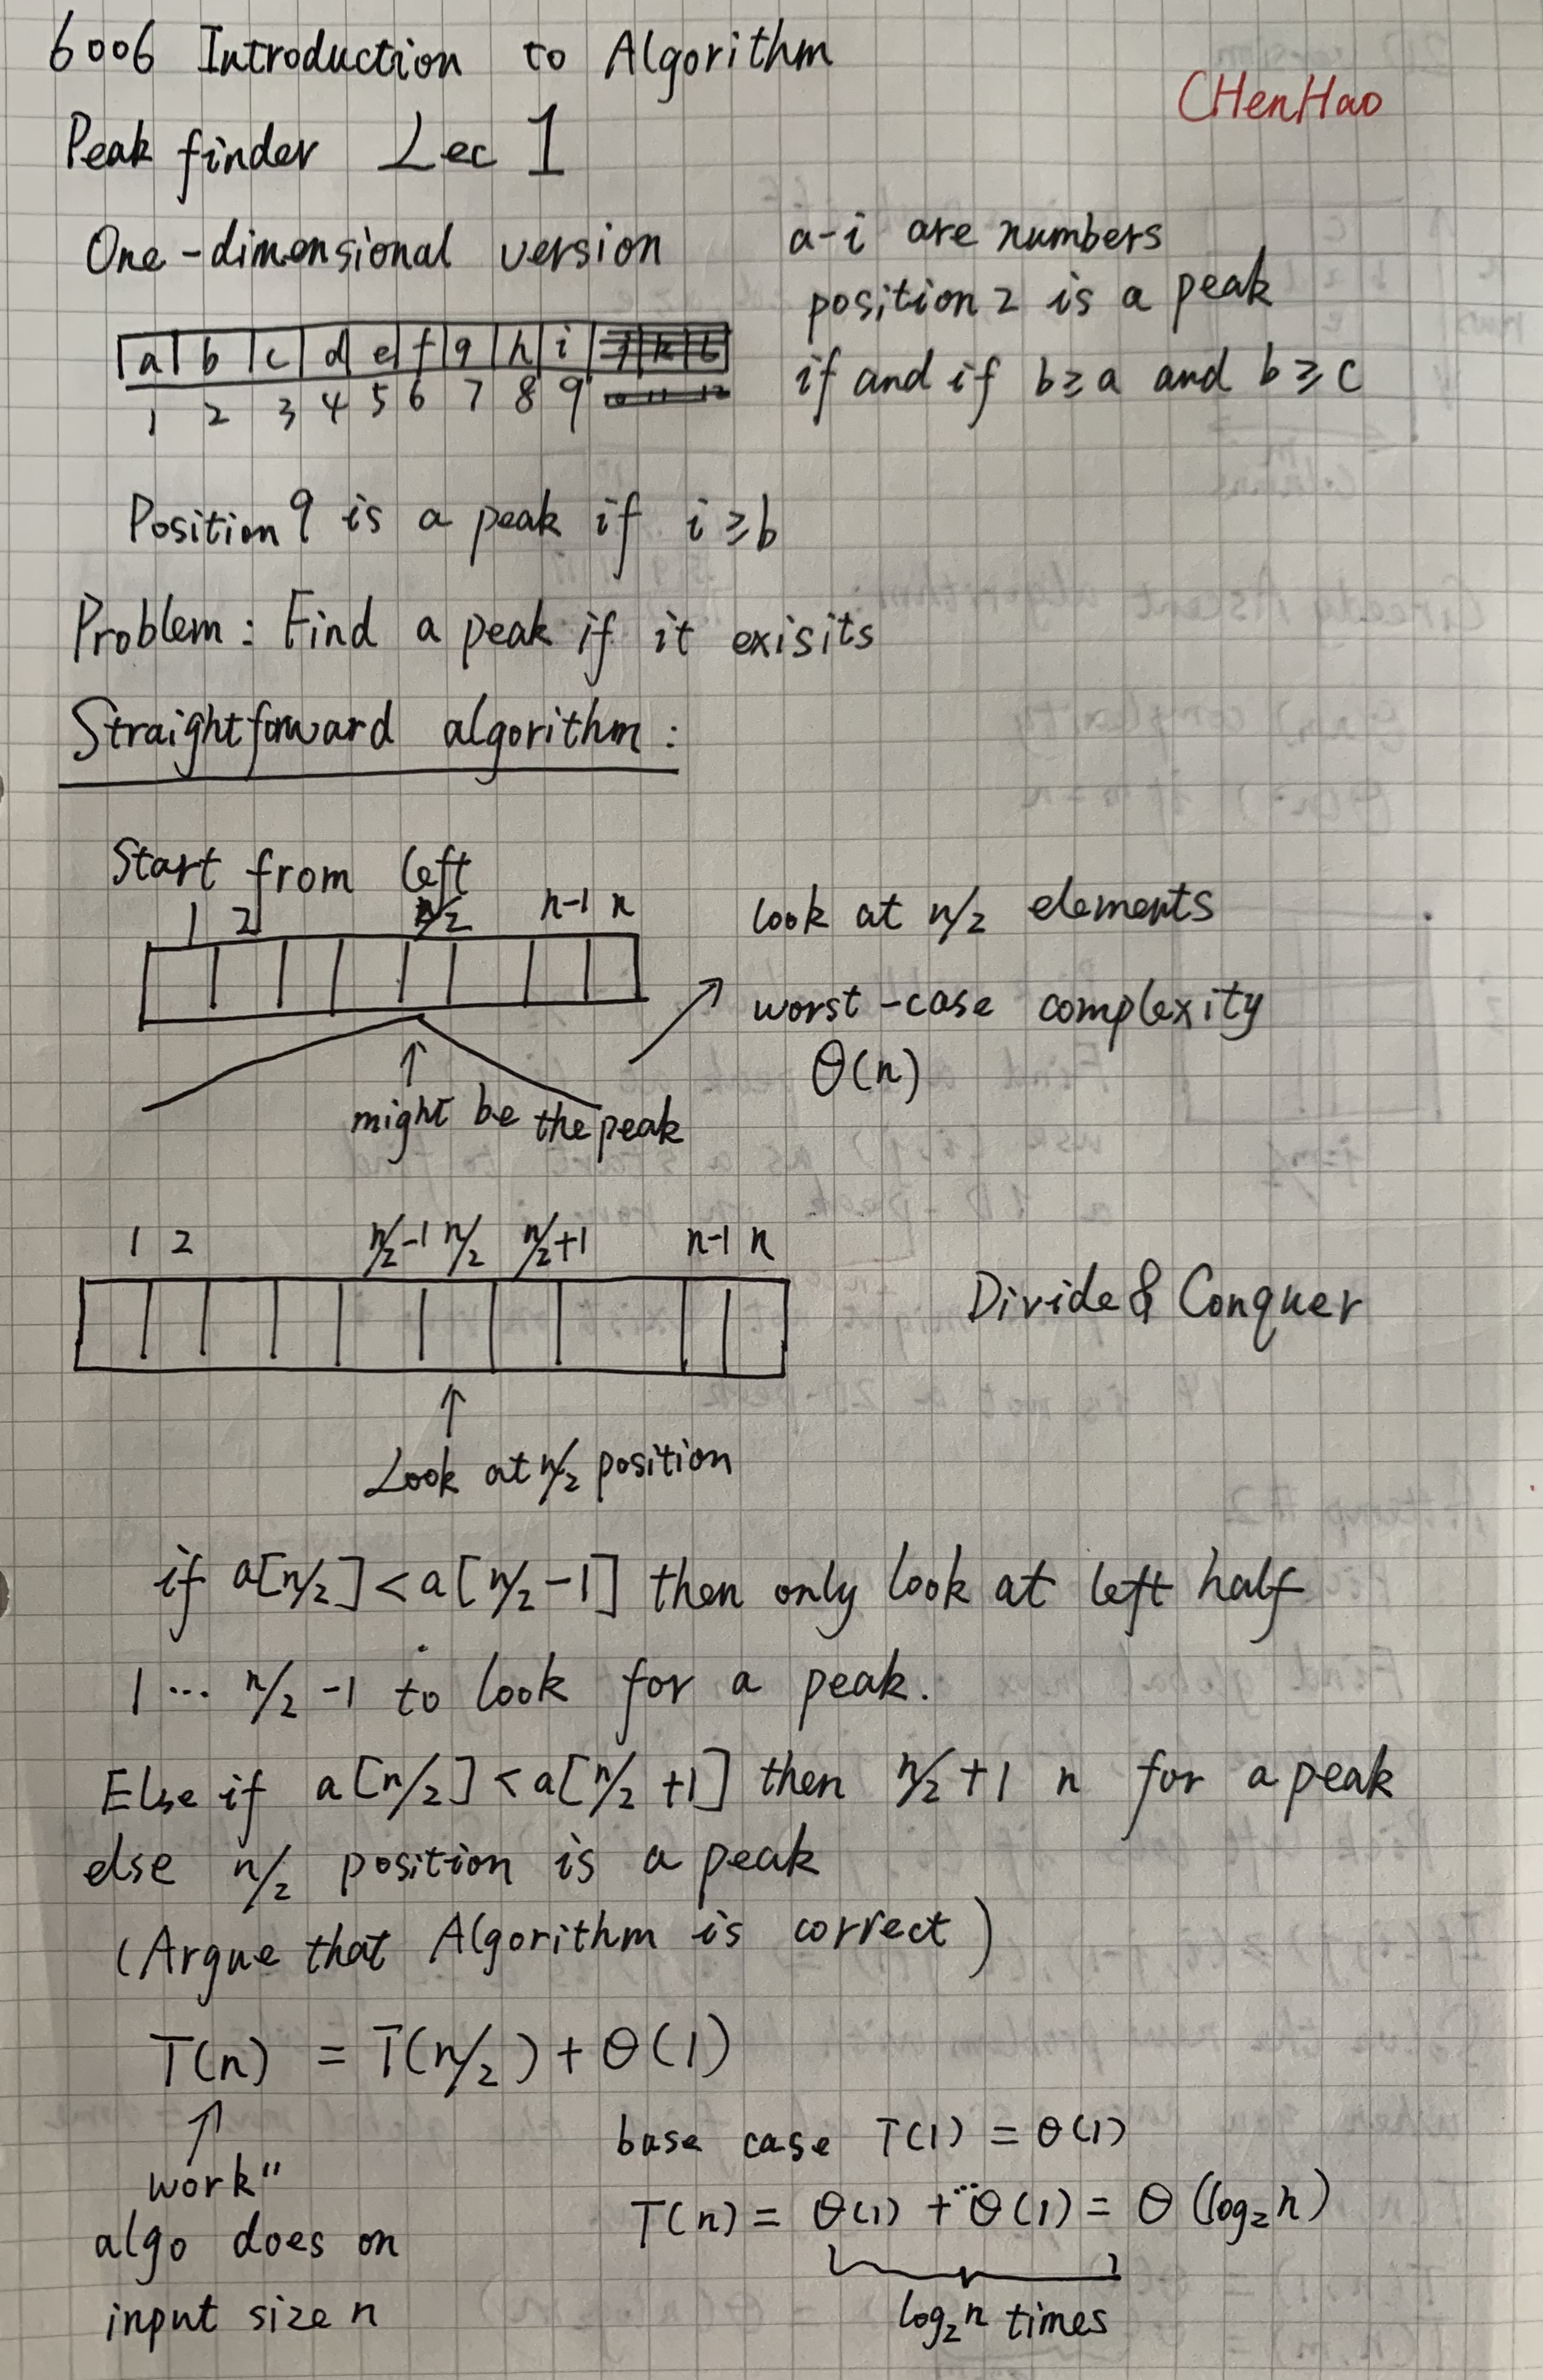 6006 Introduction to Algorithm
CHenHao
Peak finder Lec 1
One-dimensional version
a-i are numbers
position 2 is a peak
if and if b≥a and b≥c
a b c d e f g h i
1 2 3 4 5 6 7 8 9
Position 9 is a peak if i≥b
Problem: Find a peak if it exisits
Straightforward algorithm:
Start from left
1 2 n/2 n-1 n
look at n/2 elements
worst-case complexity
θ(n)
might be the peak
1 2 n/2-1 n/2 n/2+1 n-1 n
Divide & Conquer
Look at n/2 position
if a[n/2] < a[n/2-1] then only look at left half
1 ... n/2 -1 to look for a peak.
Else if a[n/2] < a[n/2 +1] then n/2+1 n for a peak
else n/2 position is a peak
(Argue that Algorithm is correct)
T(n) = T(n/2) + θ(1)
work"
algo does on
input size n
base case T(1) = θ(1)
T(n) = θ(1) + ... θ(1) = θ (log₂n)
log₂n times